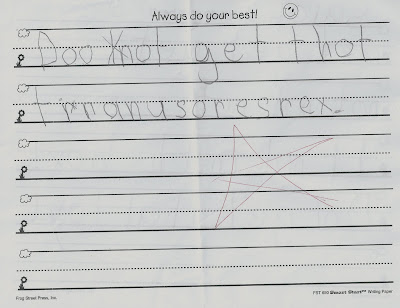 Always do your best!
Doo not get thot
Trranusoresrex.
Frog Street Press, Inc.
FST 620 Smart Start™ Writing Paper